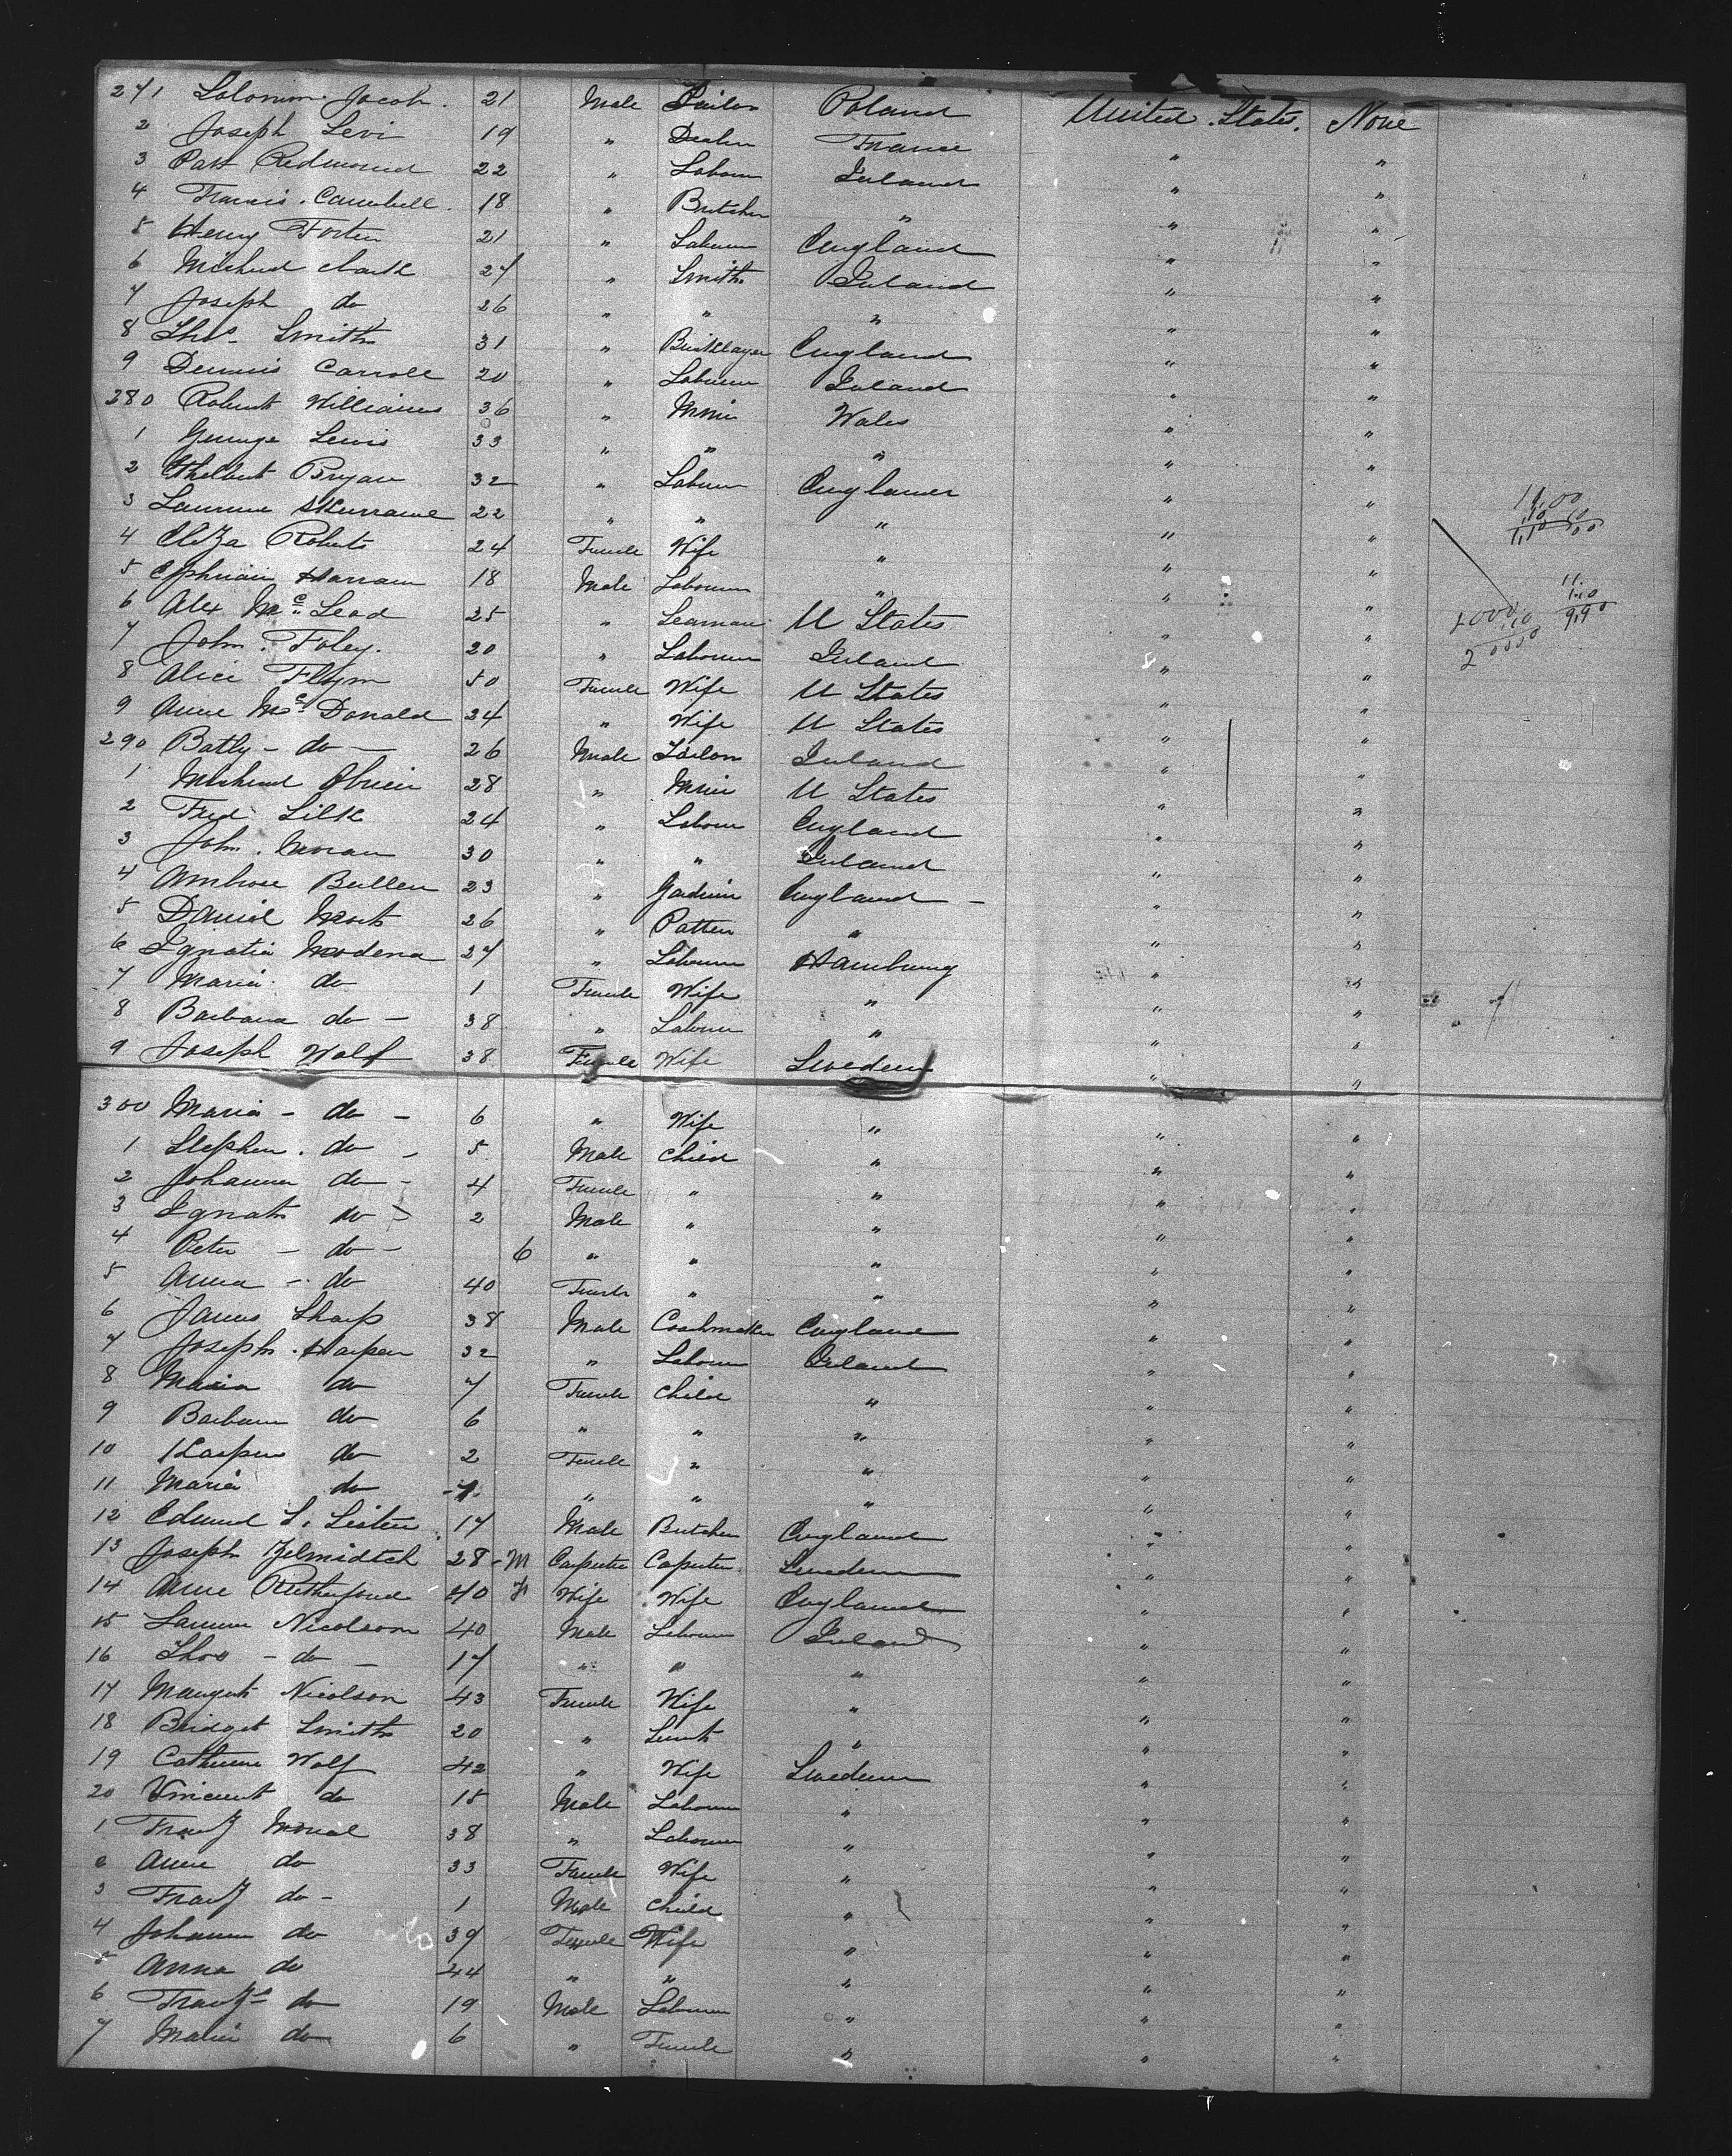 271 Solomon Jacob. 21 Male Tailor Poland United States. None
2 Joseph Levi 19 " Dealer France " "
3 Patt Redmond 22 " Labourer Ireland " "
4 Francis. Campbell. 18 " Butcher " " "
5 Henry Forter 21 " Labourer England " "
6 Michael Clark 27 " Smith Ireland " "
7 Joseph do 26 " " " " "
8 Thos Smith 31 " Bricklayer England " "
9 Dennis Carroll 20 " Labourer Ireland " "
280 Robert Williams 36 " Miner Wales " "
1 George Lewis 33 " " " " "
2 Ethelbert Bryan 32 " Labourer England " "
3 Laurence 22 " " " " "
4 Eliza Roberts 24 Female Wife " " "
5 Ephriam Hannam 18 Male Labourer " " "
6 Alex Mc Lead 25 " Seaman U States " "
7 John. Foley. 20 " Labourer Ireland " "
8 Alice Flynn 50 Female Wife U States " "
9 Anne Mc Donald 34 " Wife U States " "
290 Batly - do - 26 Male Tailor Ireland " "
1 Michael Obrien 28 " Miner U States " "
2 Fred Silk 24 " Labourer England " "
3 John. Moran 30 " " Ireland " "
4 Ambrose Bullen 23 " England - " "
5 Daniel Mort 26 " Potter " " "
6 Ignatia Modena 27 " Labourer Hamburg " "
7 Maria do 1 Female Wife " " "
8 Barbara do - 38 " Labourer " " "
9 Joseph Wolf 38 Female Wife Sweden " "
300 Maria - do - 6 " Wife " " "
1 Stephen. do - 5 Male Child " " "
2 Johanna do - 4 Female " " " "
3 Ignatz do - 2 Male " " " "
4 Peter - do - 6 " " " " "
5 Anna - do 40 Female " " " "
6 James Sharp 38 Male Coachmaker England " "
7 Joseph. Harpen 32 " Labourer Ireland " "
8 Maria do 7 Female Child " " "
9 Barbara do 6 " " " " "
10 Kaspar do 2 Female " " " "
11 Maria do 1 " " " " "
12 Edmund S. Lister 17 Male Butcher England " "
13 Joseph Zelmidtch 28 - M Carpenter Carpenter Sweden " "
14 Anne Rutherford 40 F Wife Wife England " "
15 Nicolson 40 Male Labourer Ireland " "
16 Thos - do - 17 " " " " "
17 Margret Nicolson 43 Female Wife " " "
18 Bridget Smith 20 " Servt " " "
19 Catherine Wolf 42 " Wife Sweden " "
20 Vincent do 15 Male Labourer " " "
1 Frantz 38 " Labourer " " "
2 Anne do 33 Female Wife " " "
3 Frantz do - 1 Male Child " " "
4 Johanna do 39 Female Wife " " "
5 Anna do 44 " " " " "
6 Frantz do 19 Male Labourer " " "
7 Maria do 6 " Female " " "